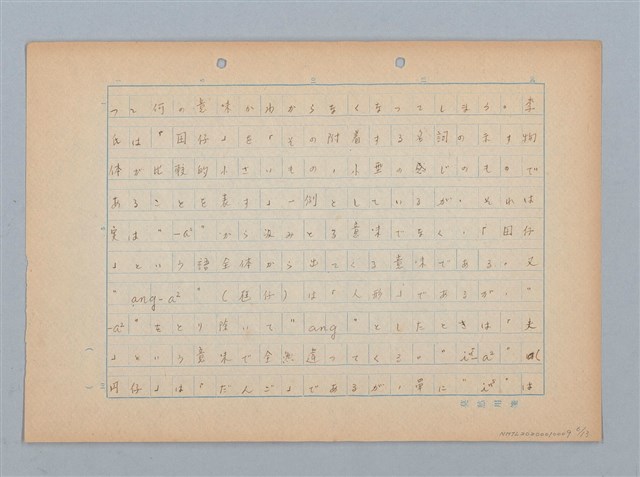 って何の意味かわからなくなってしまう。李
氏は「囝仔」を「その附着する名詞の示す物
体が比較的小さいもの、小型の感じのもので
あることを表す」一例としているが、それは
実は "-a²" から汲みとる意味でなく、「囝仔
」という語全体から出てくる意味である。又
"ang-a²" (尪仔) は「人形」であるが、"
-a²" をとり除いて "ang" としたときは「夫
」という意味で全然違ってくる。"iⁿ-a²"
円仔」は「だんご」であるが、単に "iⁿ" は